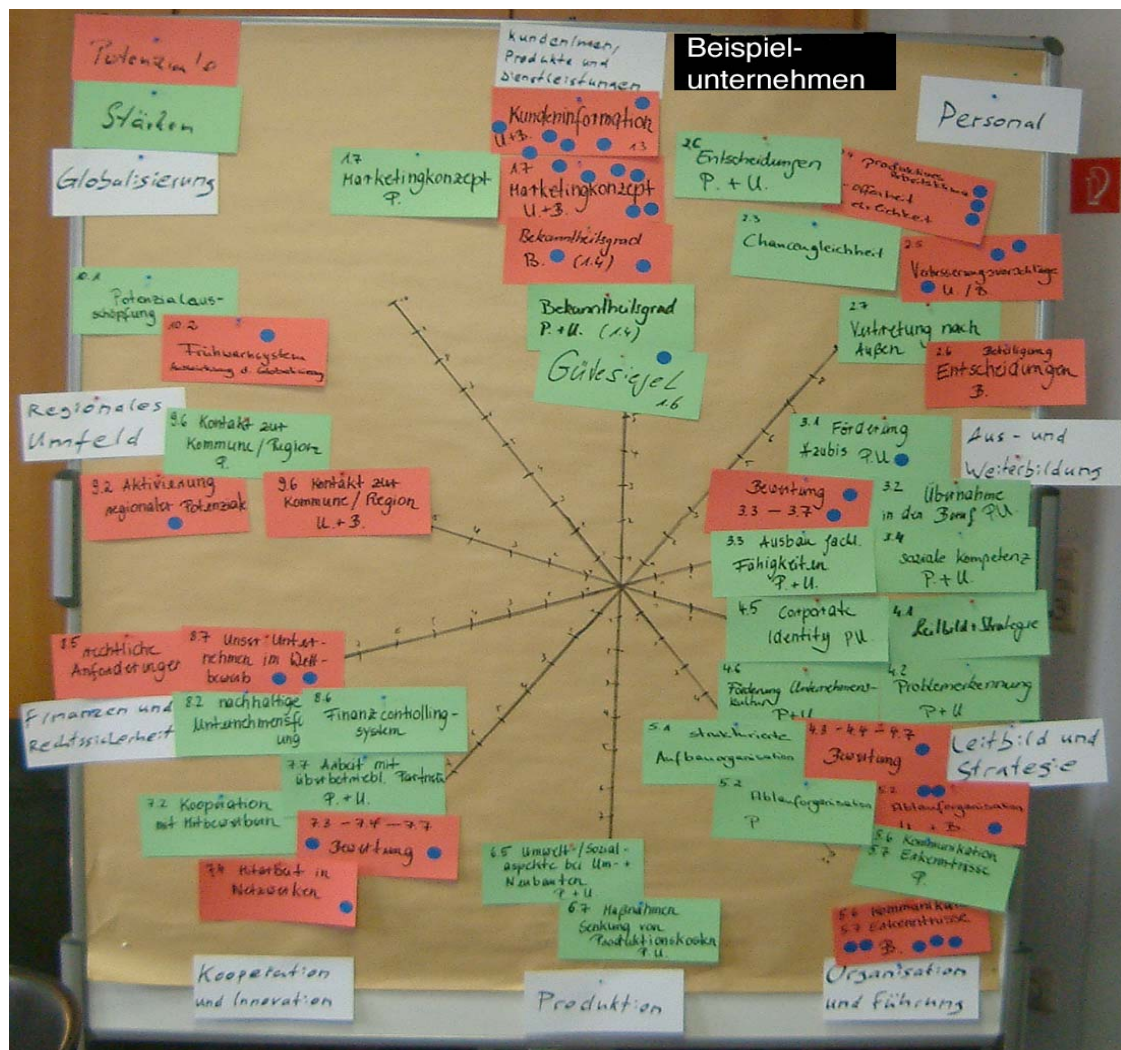 Potenziale
Stärken
Globalisierung
Kunden/innen,
Produkte und
Dienstleistungen
Beispiel-
unternehmen
Personal
Kundeninformation
U+B. 1.3
1.7
Marketingkonzept
P.
1.7
Marketingkonzept
U+B.
Bekanntheitsgrad
B. (1.4)
Bekanntheitsgrad
P.+U. (1.4)
Gütesiegel
1.6
2.6
Entscheidungen
P.+U.
produktives
Arbeitsklima
-Offenheit
Ehrlichkeit
2.3
Chancengleichheit
2.5
Verbesserungsvorschläge
U./B
2.7
Vertretung nach
Außen
2.6 Beteiligung
Entscheidungen
B.
10.1
Potenzialaus-
schöpfung
10.2
Frühwarnsystem
Auswirkung d. Globalisierung
Regionales
Umfeld
9.6 Kontakt zur
Kommune/Region
P.
9.2 Aktivierung
regionaler Potenziale
9.6 Kontakt zur
Kommune/Region
U.+B.
3.1 Förderung
Azubis P.U
Aus- und
Weiterbildung
Bewertung
3.3 – 3.7
3.2 Übernahme
in den Beruf PU
3.3 Ausbau fachl.
Fähigkeiten
P.+U.
3.4
soziale Kompetenz
P.+U.
4.5 Corporate
Identity PU.
4.1
Leitbild+Strategie
4.6
Förderung Unternehmens-
kultur
P+U
4.2
Problemerkennung
P+U
8.5 rechtliche
Anforderungen
8.7 Unser Unter-
nehmen im Wett-
bewerb
Finanzen und
Rechtssicherheit
8.2 nachhaltige
Unternehmensfü
ung
8.6
Finanzcontrolling-
system
5.1 strukturierte
Aufbauorganisation
4.3 – 4.4 – 4.7
Bewertung
Leitbild und
Strategie
7.7 Arbeit mit
überbetriebl. Partnern
P.+U.
7.2 Kooperation
mit Mitbewerbern
7.3 – 7.4 – 7.7
Bewertung
7.4 Mitarbeit in
Netzwerken
5.2
Ablauforganisation
P
5.2
Ablauforganisation
U + B.
5.6 Kommunikation
5.7 Erkenntnisse
P.
6.5 Umwelt-/Sozial-
aspekte bei Um- +
Neubauten
P+U
6.7 Maßnahmen
Senkung von
Produktionskosten
P.U.
5.6 Kommunikat
5.7 Erkenntnisse
B.
Kooperation
und Innovation
Produktion
Organisation
und Führung